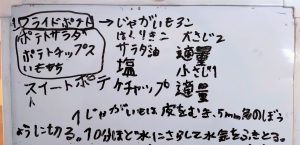 フライドポテト → じゃがいも3コ
ポテトサラダ はくりきこ 大さじ2
ポテトチップス サラダ油 適量
いももち 塩 小さじ1
スイートポテト ケチャップ 適量
1じゃがいもは皮をむき、5mm角のぼう
ようにきる。10分ほど水にさらして水気をふきとる。